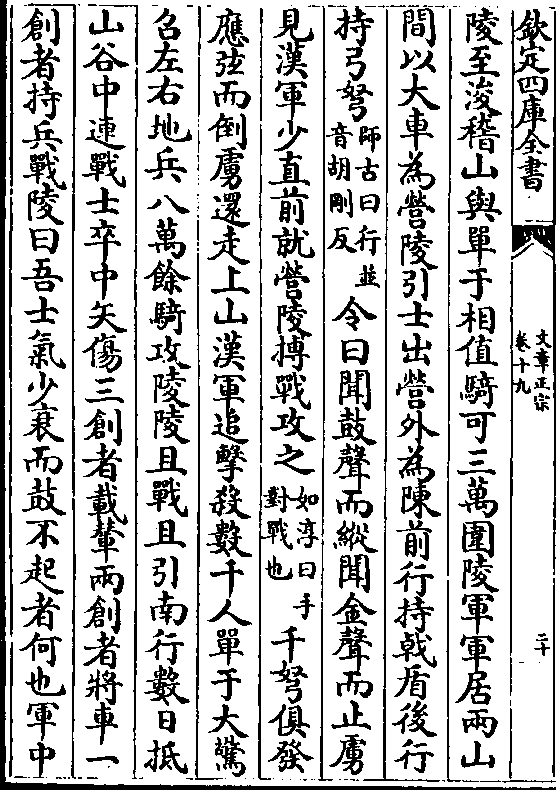 欽定四庫全書
文章正宗
卷十九
二十
陵至浚稽山與單于相值騎可三萬圍陵軍軍居兩山
間以大車為營陵引士出營外為陳前行持戟盾後行
持弓弩師古曰行並音胡剛反令曰聞鼓聲而縱聞金聲而止虜
見漢軍少直前就營陵搏戰攻之如淳曰手對戰也千弩俱發
應弦而倒虜還走上山漢軍追擊殺數千人單于大驚
召左右地兵八萬餘騎攻陵陵且戰且引南行數日抵
山谷中連戰士卒中矢傷三創者載輦兩創者將車一
創者持兵戰陵曰吾士氣少衰而鼓不起者何也軍中